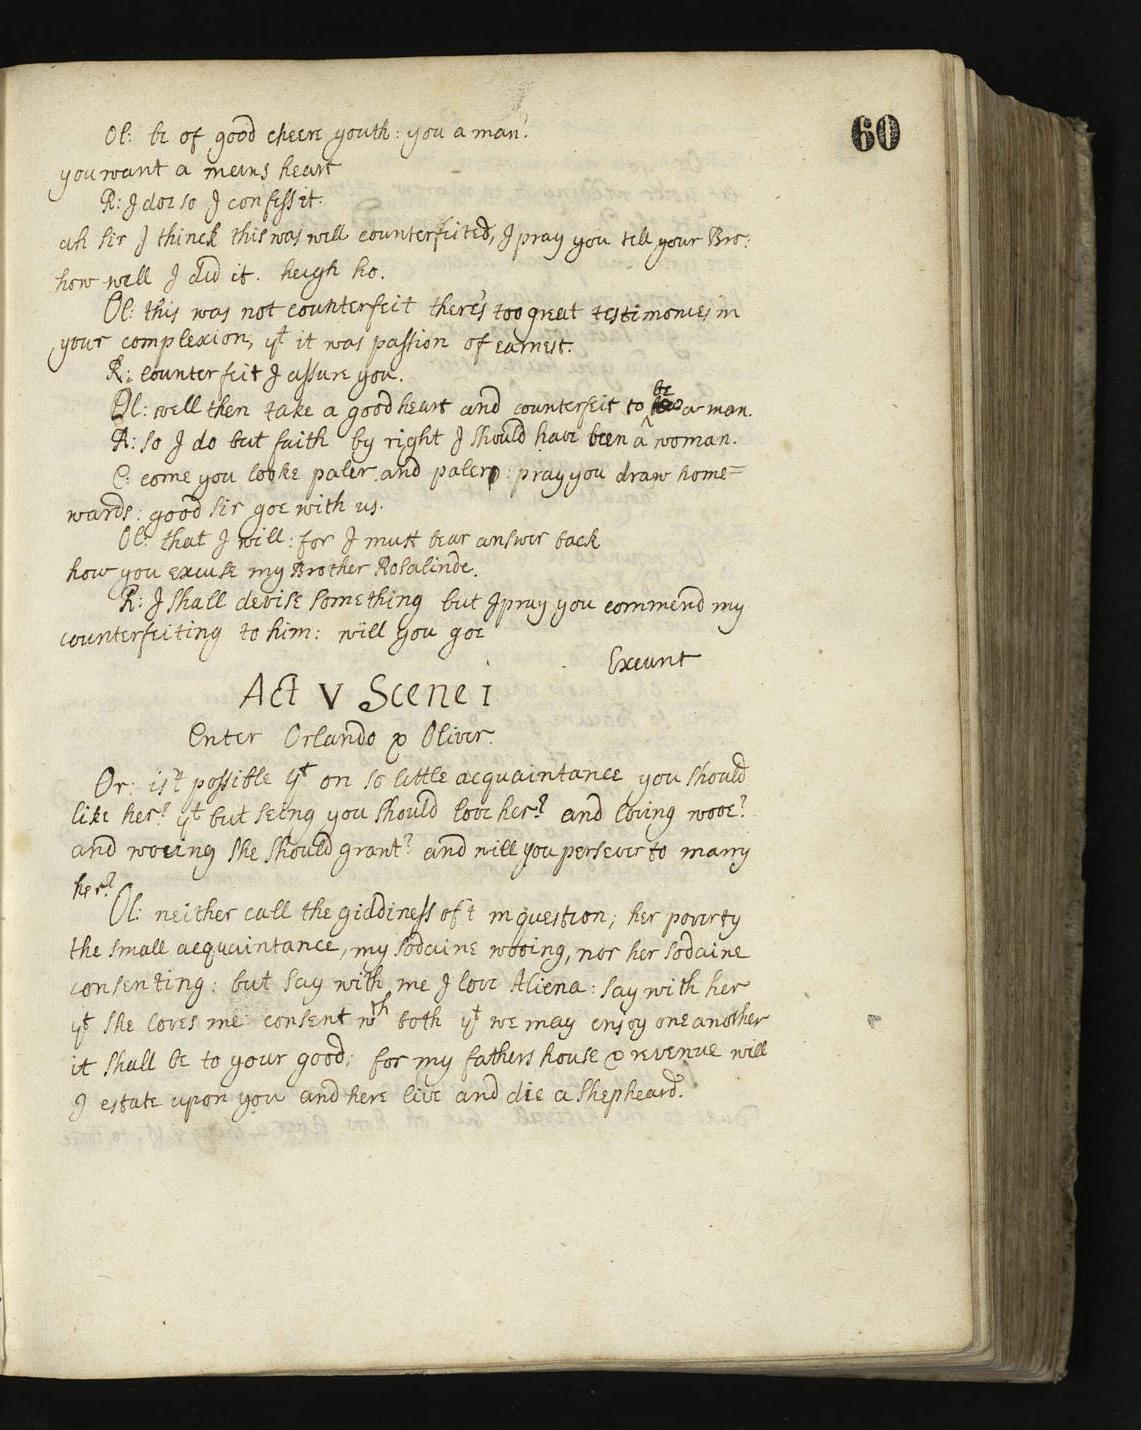 60
Ol: be of good cheere youth: you a man!
you want a mans heart
R: I doe so I confess it:
ah sir I thinck this was well counterfeited, I pray you tell your Bro:
how well I did it. heigh ho.
Ol: this was not counterfeit there's too great testimonies in
your complexion, yt it was passion of earnest.
R: counterfeit I assure you.
Ol: well then take a good heart and counterfeit to be a man.
R: so I do but faith by right I should have been a woman.
C: come you looke paler and paler: pray you draw home=
wards: good sir goe with us.
Ol: that I will: for I must bear answer back
how you excuse my Brother Rosalinde.
R: I shall devise something but I pray you commend my
counterfeiting to him: will you goe
Exeunt
Act V Scene I
Enter Orlando & Oliver.
Or: is't possible yt on so little acquaintance you should
like her? yt but seing you should love her? and loving wooe?
and wooing she should grant? and will you persever to marry
her?
Ol: neither call the giddiness of't in question; her poverty
the small acquaintance, my sodaine wooing, nor her sodaine
consenting: but say with me I love Aliena: say with her
yt she loves me: consent wth both yt we may enjoy one another
it shall be to your good; for my fathers house & revenue will
I estate upon you and here live and die a shepheard.